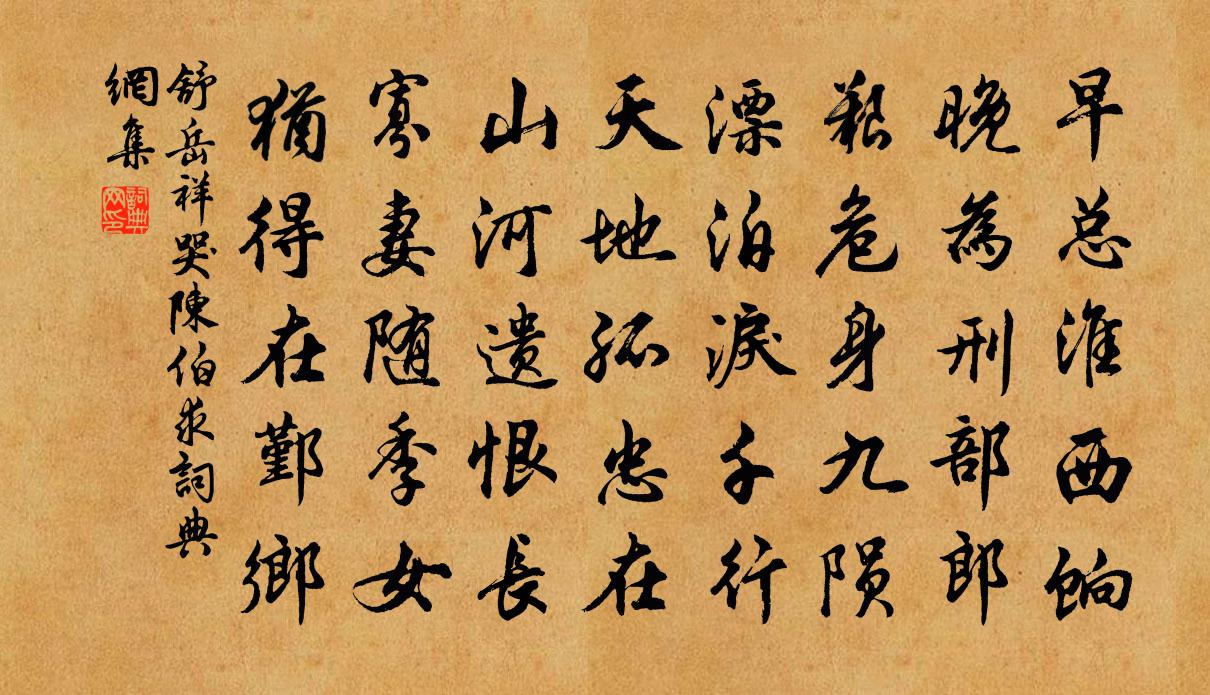 早总淮西饷
晚為刑部郎
艱危身九陨
漂泊淚千行
天地孤忠在
山河遗恨長
寡妻随季女
猶得在鄞鄉
舒岳祥哭陳伯求詞典
網集
詞典網印